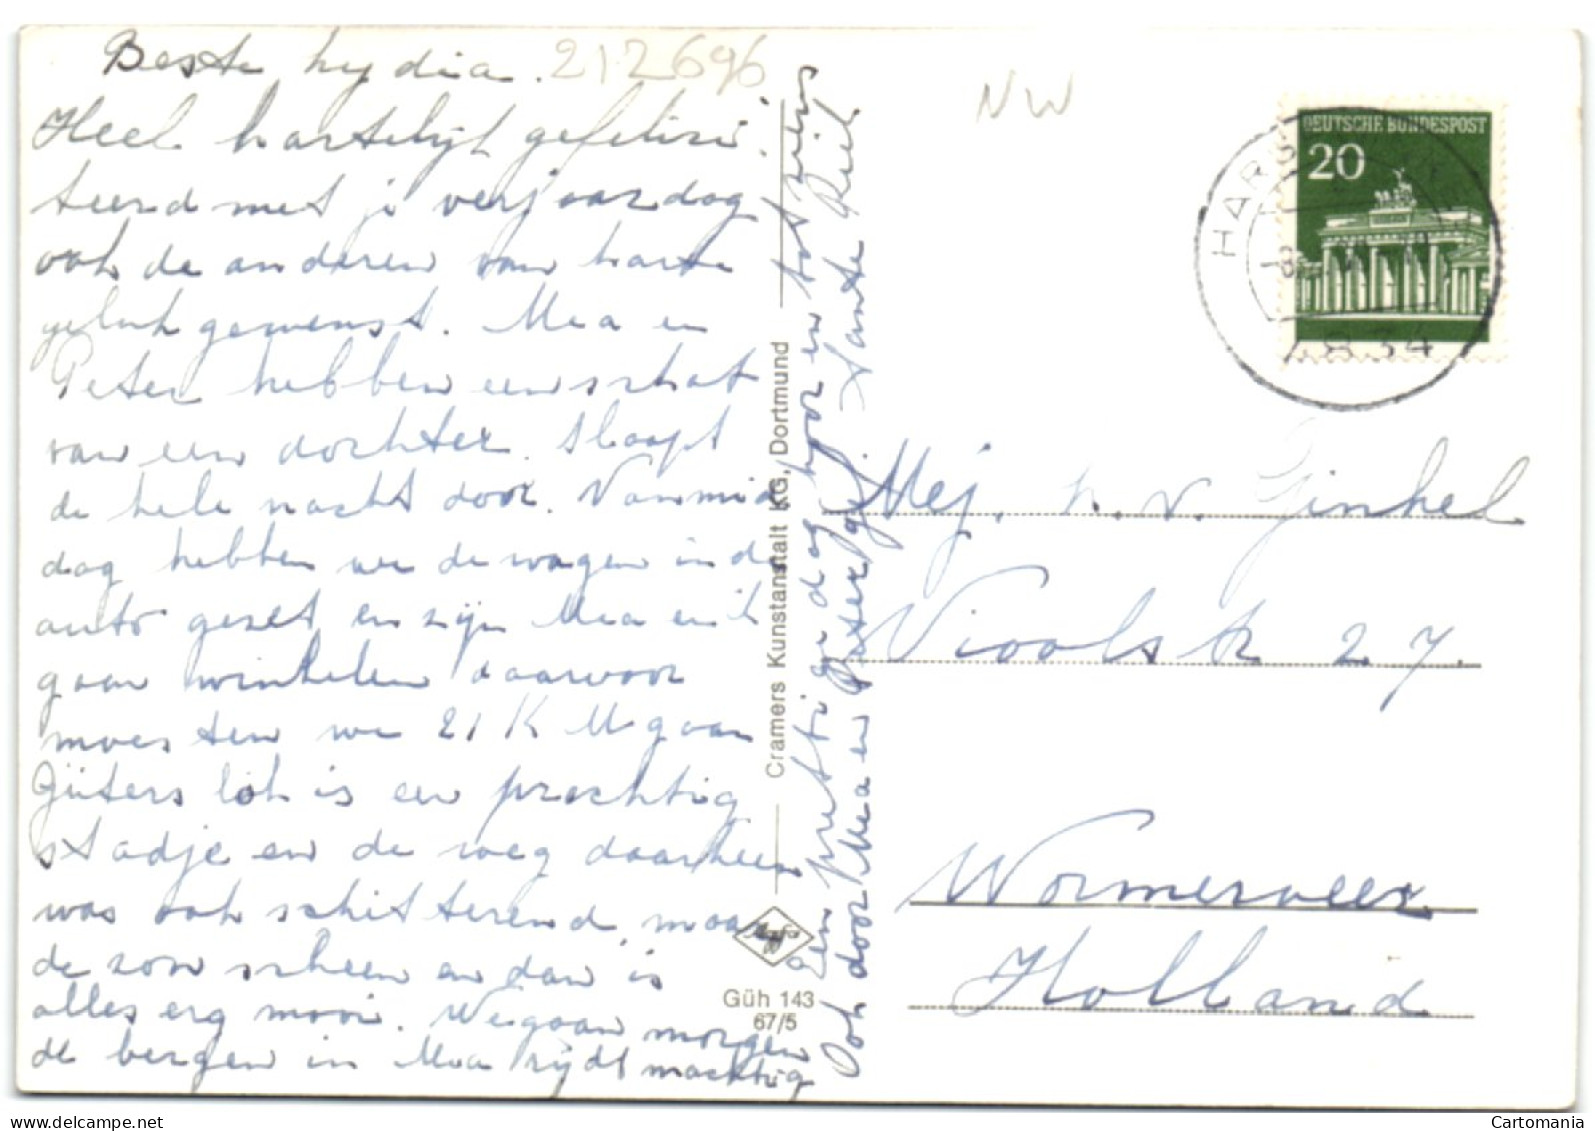 Beste Lydia. 212696
Heel hartelijk gefelisi.
teerd met je verjaardag
ook de anderen van harte
geluk gewenst. Mea en
Peter hebben een schat
van een dochter. Slaapt
de hele nacht door. Vanmid
dag hebben we de wagen in de
auto gezet en zijn Mea en ik
gaan winkelen daarvoor
moesten we 21 K M gaan
Güters loh is een prachtig
stadje en de weg daarheen
was ook schitterend, maar
de zon scheen en dan is
alles erg mooi. We gaan morgen
de bergen in Mea rijdt machtig
een prettige dag hoor en tot ziens
Ook door Mea en Peter gef. Tante Riek
Cramers Kunstanstalt KG, Dortmund
Agfa
Güh 143
67/5
NW
DEUTSCHE BUNDESPOST
20
HARS
Mej. L. v. Ginkel
Vioolstr 27.
Wormerveer
Holland
www.delcampe.net
Cartomania